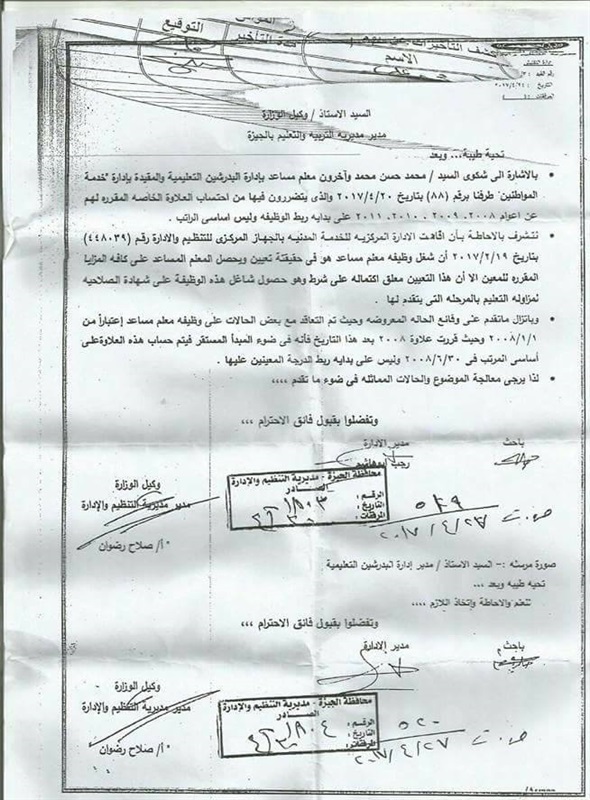 التوقيع
مدة التأخير
الاسم
السيد الاستاذ / وكيل الوزارة
مدير مديرية التربية والتعليم بالجيزة
تحية طيبة... وبعد
• بالاشارة الى شكوى السيد / محمد حسن محمد وآخرون معلم مساعد بإدارة البدرشين التعليمية والمقيدة بإدارة خدمة
المواطنين طرفنا برقم (٨٨) بتاريخ ٢٠١٧/٤/٢٠ والذى يتضررون فيها من احتساب العلاوة الخاصه المقرره لهم
عن اعوام ٢٠٠٨ ، ٢٠٠٩ ، ٢٠١٠ ، ٢٠١١ على بدايه ربط الوظيفه وليس اساسى الراتب .
• نتشرف بالاحاطة بأن افادت الادارة المركزيه للخدمة المدنيه بالجهاز المركزى للتنظيم والادارة رقم (٤٤٨٠٣٩)
بتاريخ ٢٠١٧/٢/١٩ أن شغل وظيفه معلم مساعد هو فى حقيقتة تعيين ويحصل المعلم المساعد على كافه المزايا
المقرره للمعين الا أن هذا التعيين معلق اكتماله على شرط وهو حصول شاغل هذه الوظيفة على شهادة الصلاحيه
لمزاوله التعليم بالمرحله التى يتقدم لها .
• وبانزال ماتقدم على وقائع الحاله المعروضه وحيث تم التعاقد مع بعض الحالات على وظيفه معلم مساعد إعتباراً من
٢٠٠٨/١/١ وحيث قررت علاوة ٢٠٠٨ بعد هذا التاريخ فأنه فى ضوء المبدأ المستقر فيتم حساب هذه العلاوةعلى
أساسى المرتب فى ٢٠٠٨/٦/٣٠ وليس على بدايه ربط الدرجة المعينين عليها .
• لذا يرجى معالجة الموضوع والحالات المماثله فى ضوء ما تقدم ،،،،
وتفضلوا بقبول فائق الاحترام ،،،
باحث
مدير الادارة
رجب ابوهاشم
وكيل الوزارة
مدير مديرية التنظيم والإدارة
أ/ صلاح رضوان
محافظة الجيزة - مديرية التنظيم والإدارة
الصادر
الرقم : ١٨٠٣
التاريخ :
المرفقات :
٥١٩
٢٠١٧/٤/٢٧
صورة مرسله :- السيد الاستاذ / مدير إدارة البدرشين التعليمية
تحيه طيبه وبعد ...
للعلم والاحاطة وإتخاذ اللازم ،،،،
وتفضلوا بقبول فائق الاحترام ،،،
باحث
مدير الإدارة
وكيل الوزارة
مدير مديرية التنظيم والإدارة
أ/ صلاح رضوان
محافظة الجيزة - مديرية التنظيم والإدارة
الصادر
الرقم : ١٨٠٤
التاريخ :
المرفقات :
٥٢٠
٢٠١٧/٤/٢٧